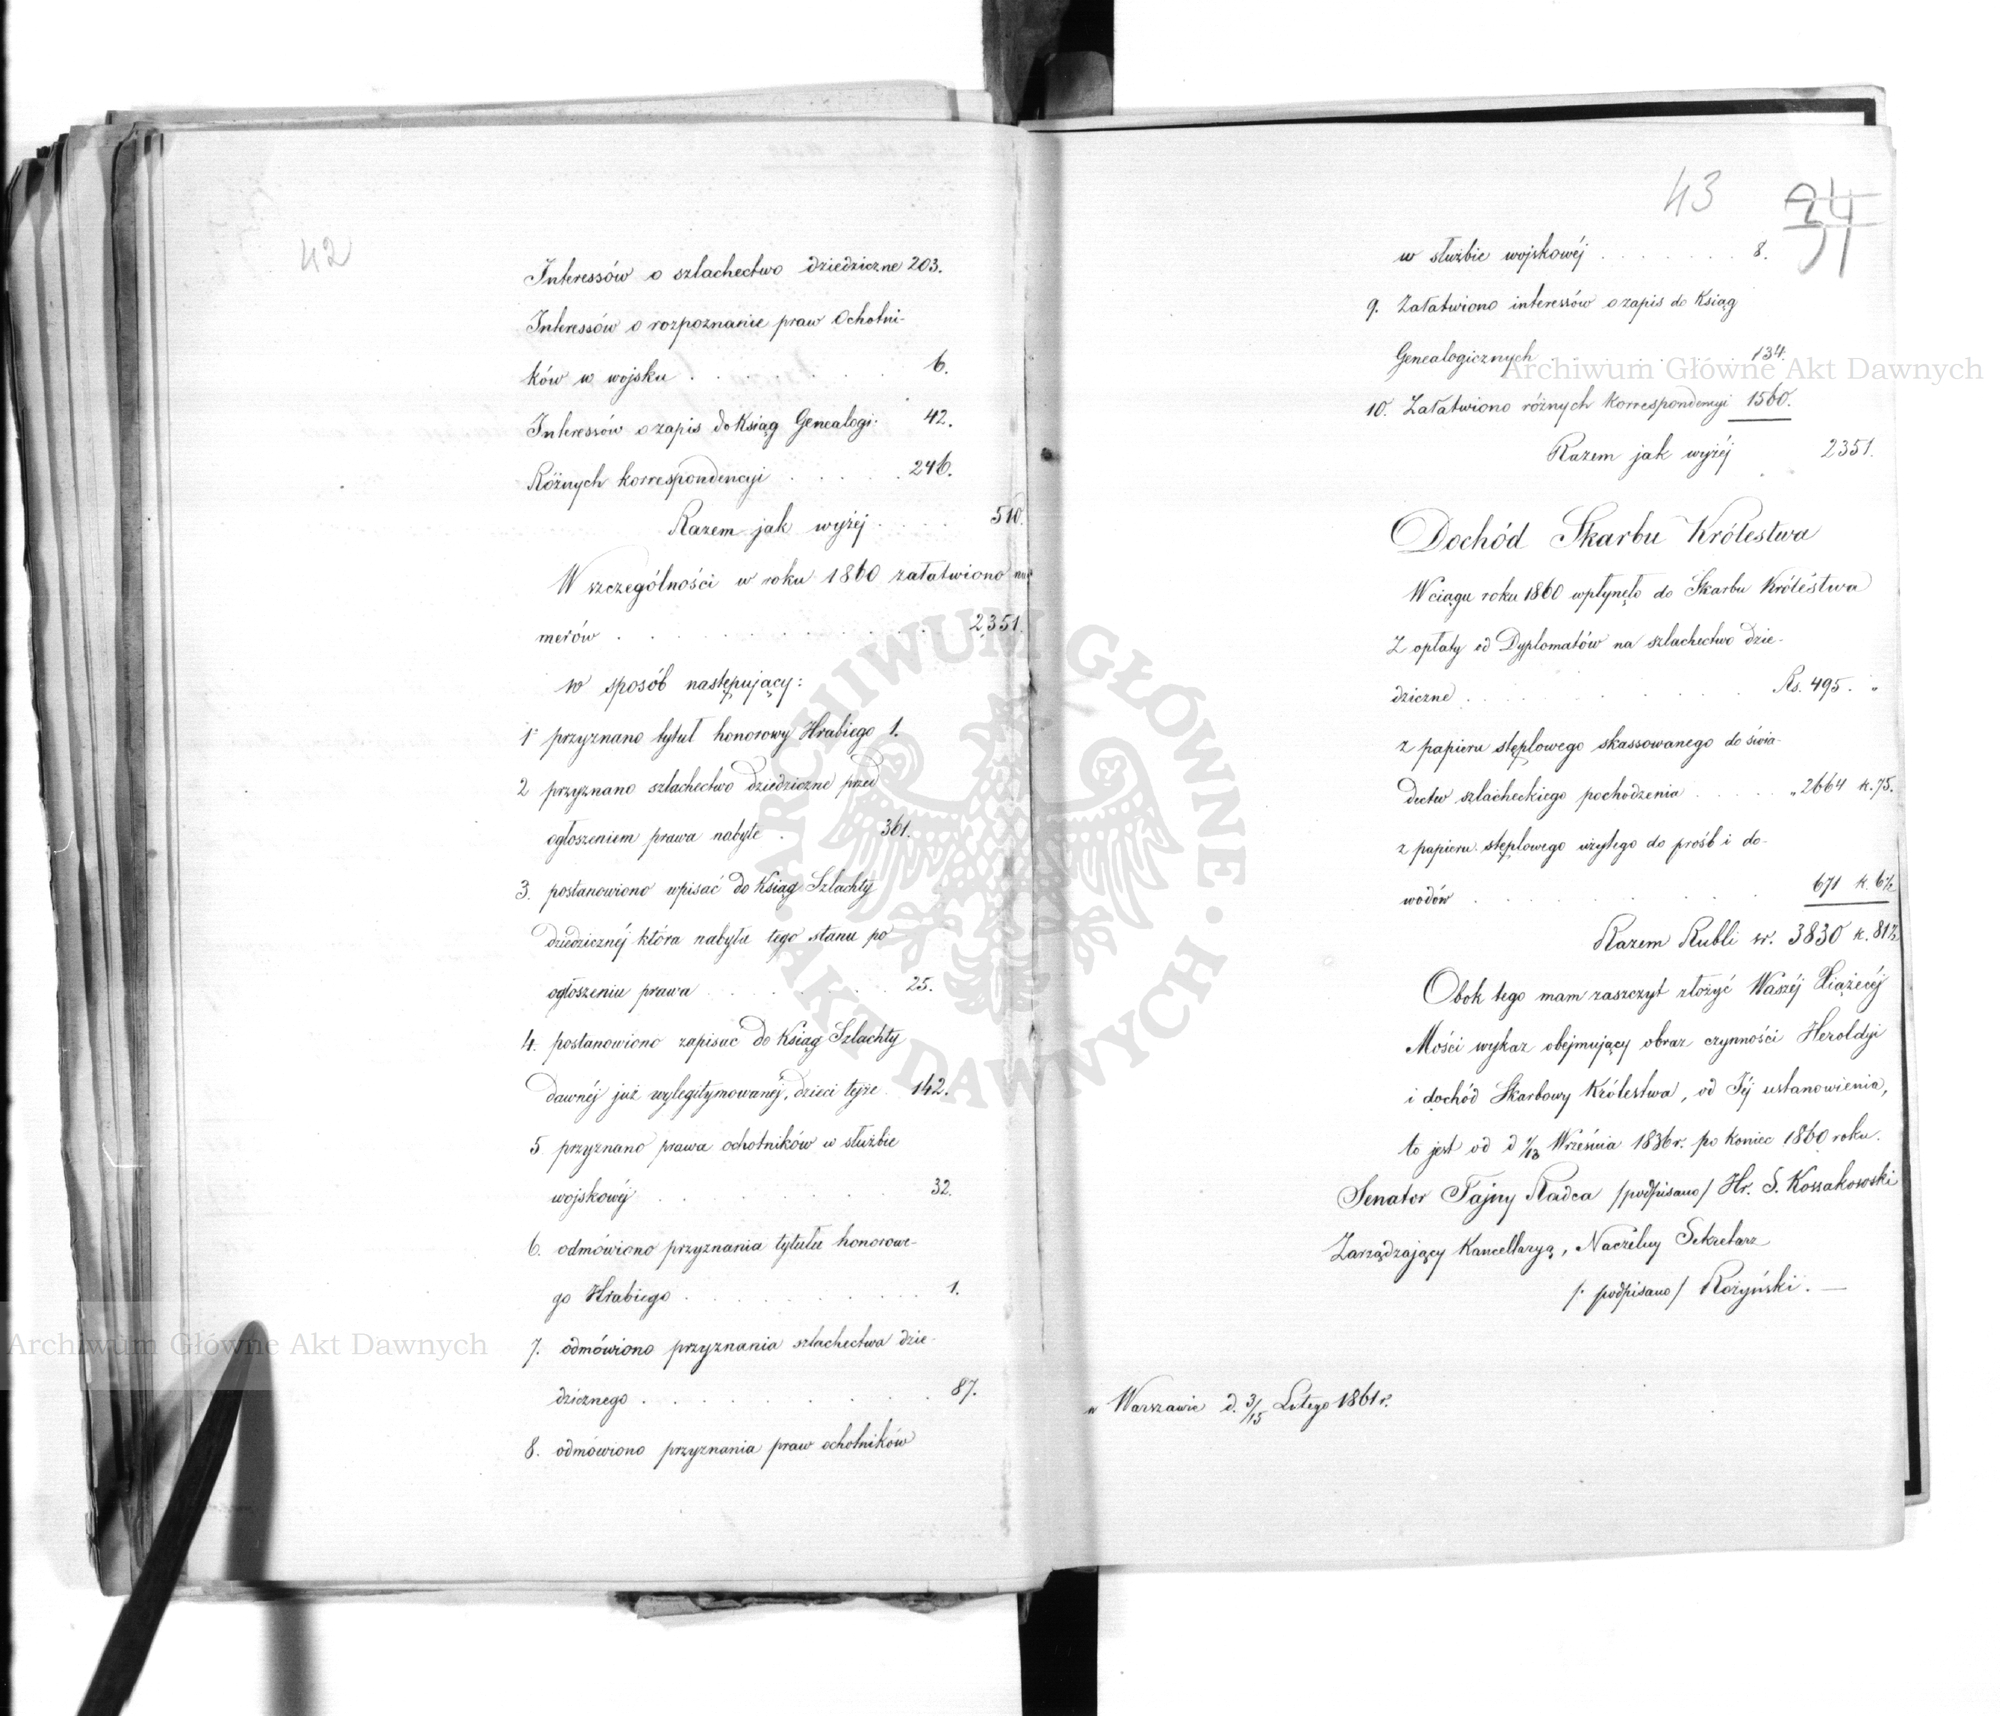 42
Interessów o szlachectwo dziedziczne 203.
Interessów o rozpoznanie praw Ochotni-
ków w wojsku . . . . . . 6.
Interessów o zapis do Ksiąg Genealogi: 42.
Różnych korrespondencyi . . . . . 246.
Razem jak wyżej . . . . 510.
W szczególności w roku 1860 załatwiono nu-
merów . . . . . . . . . . 2,351.
w sposób następujący:
1° przyznano tytuł honorowy Hrabiego 1.
2 przyznano szlachectwo dziedziczne przed
ogłoszeniem prawa nabyte . 361.
3. postanowiono wpisać do Ksiąg Szlachty
dziedzicznéj która nabyła tego stanu po
ogłoszeniu prawa . . . . . . 25.
4. postanowiono zapisac do Ksiąg Szlachty
dawnéj już wylegitymowanéj, dzieci tejże . 142.
5. przyznano prawa ochotników w służbie
wojskowéj . . . . . . . . 32.
6. odmówiono przyznania tytułu honorowe-
go Hrabiego . . . . . . . . 1.
7. odmówiono przyznania szlachectwa dzie-
dzicznego . . . . . . . . . 87.
8. odmówiono przyznania praw ochotników
43 34
w służbie wojskowéj . . . . . . . 8.
9. Załatwiono interessów o zapis do Ksiąg
Genealogicznych . . . . . . 134.
10. Załatwiono różnych korrespondencyi 1560.
Razem jak wyżéj 2351.
Dochód Skarbu Królestwa
W ciągu roku 1860 wpłynęło do Skarbu Królestwa
Z opłaty od Dyplomatów na szlachectwo dzie-
dziczne . . . . . . . . Rs. 495. "
z papieru stęplowego skassowanego do świa-
dectw szlacheckiego pochodzenia . . . . . " 2664 k. 75.
z papieru stęplowego użytego do prośb i do-
wodów . . . . . . . . 671 k. 6½
Razem Rubli sr. 3830 k. 81½
Obok tego mam zaszczyt złożyć Waszéj Xiążecéj
Mości wykaz obejmujący obraz czynności Heroldyi
i dochód Skarbowy Królestwa, od Jéj ustanowienia,
to jest od d 1/13 Września 1836 r. po koniec 1860 roku.
Senator Tajny Radca /podpisano/ Hr. S. Kossakowski
Zarządzający Kancellaryą, Naczelny Sekretarz
/: podpisano/ Rożyński. —
w Warszawie d. 3/15 Lutego 1861 r.
Archiwum Główne Akt Dawnych
Archiwum Główne Akt Dawnych
ARCHIWUM GŁÓWNE · AKT DAWNYCH ·